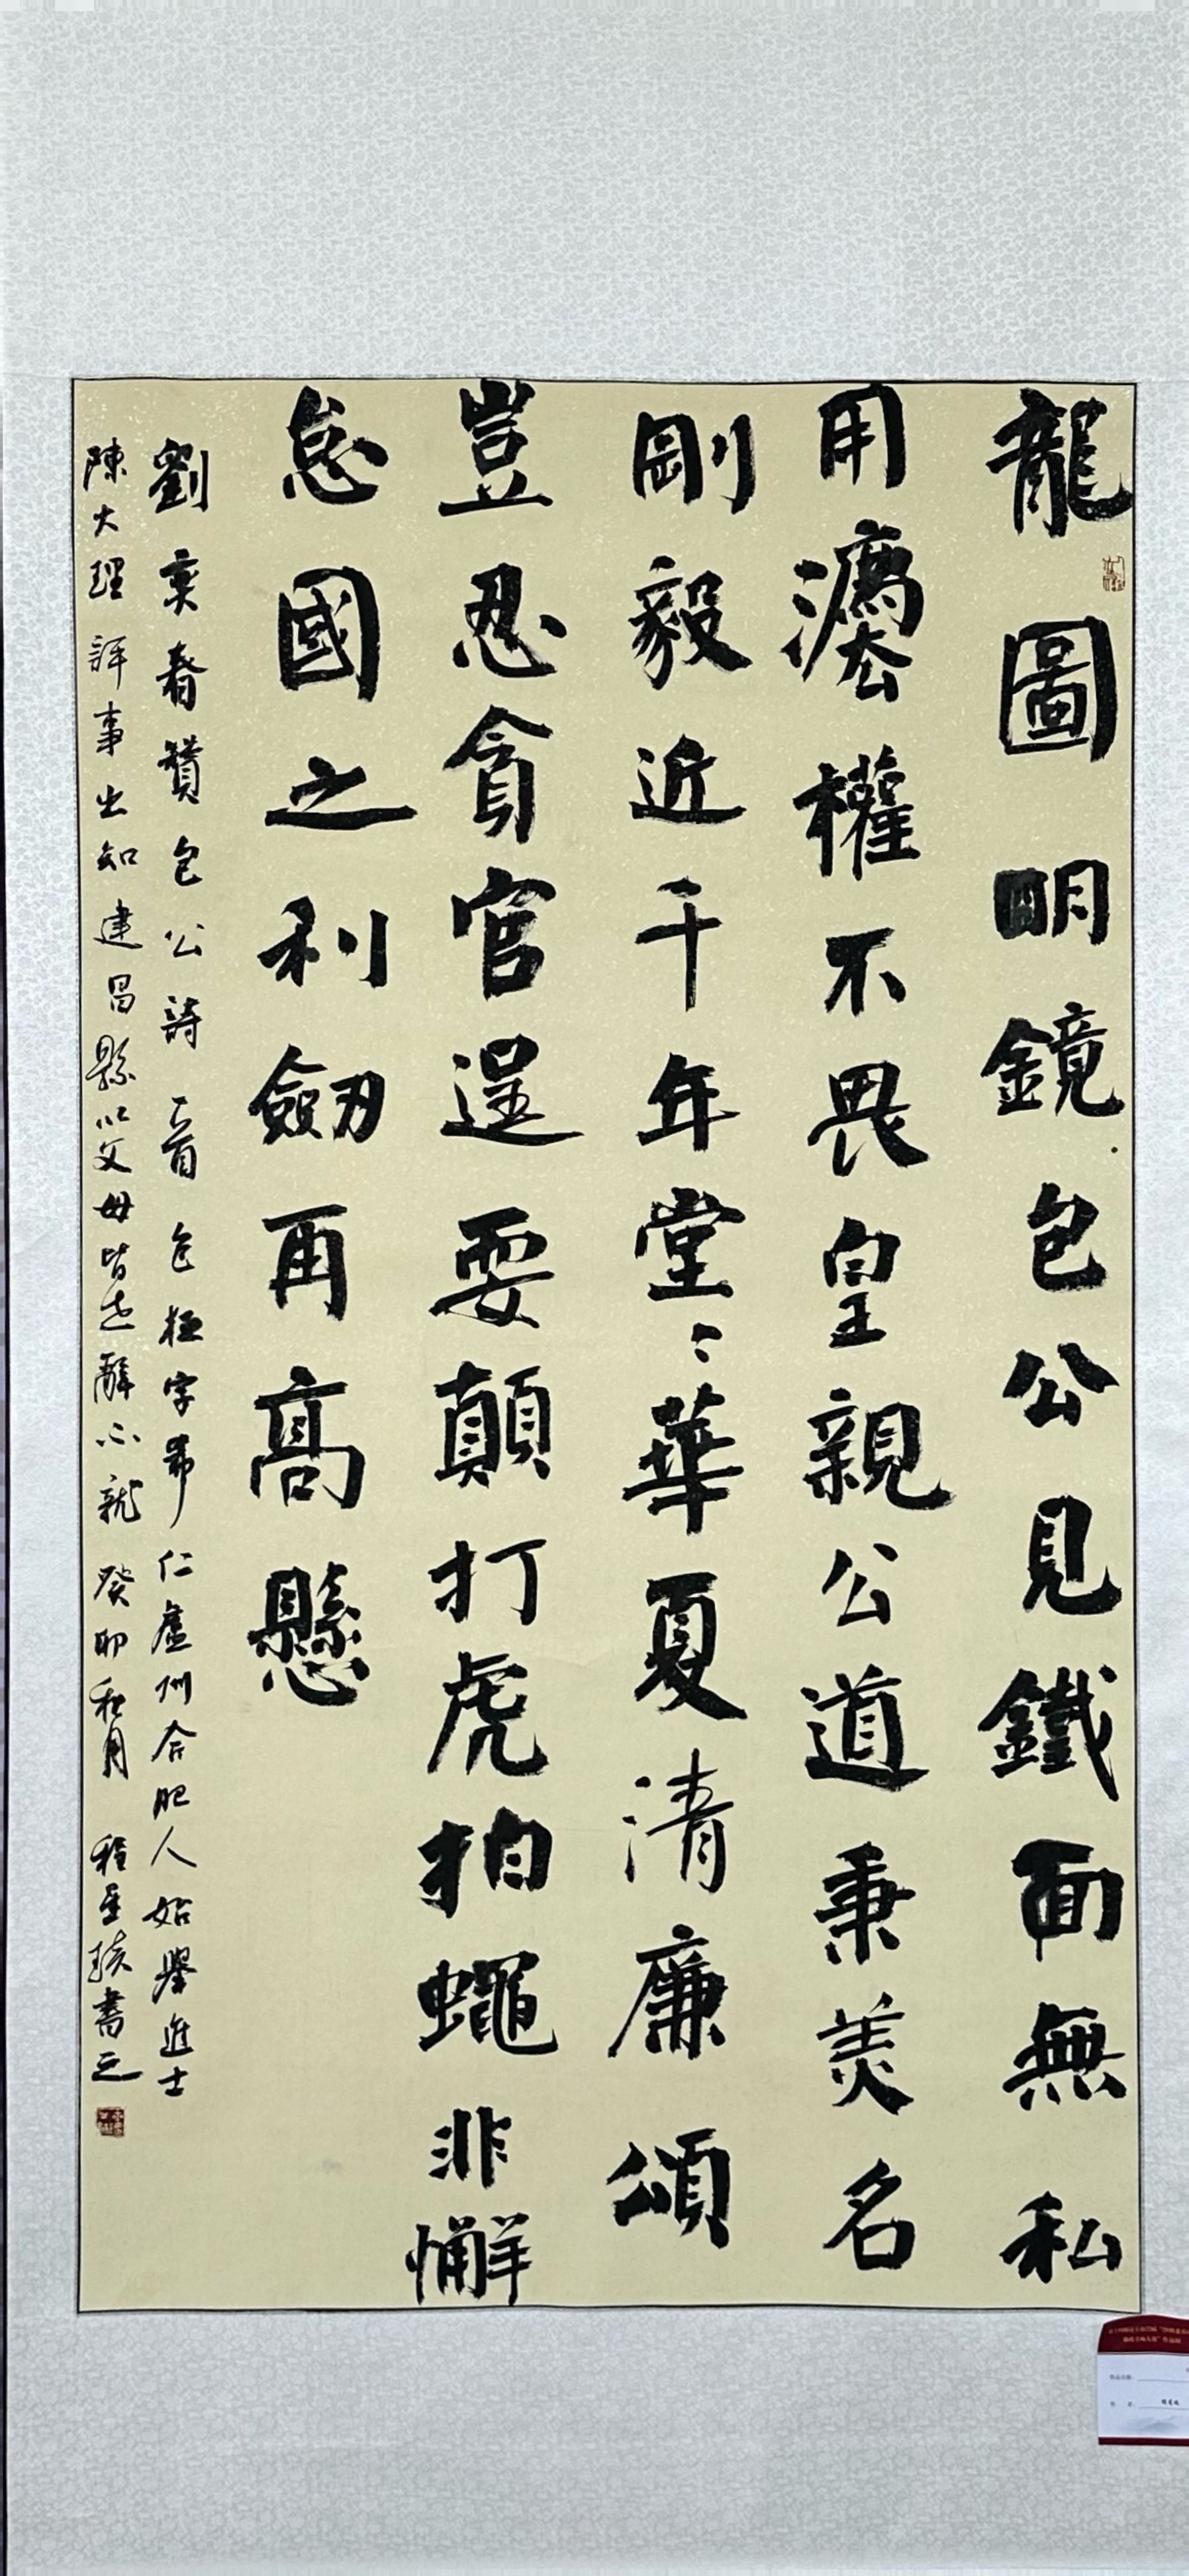 龍圖明鏡包公見鐵面無私
用灋權不畏皇親公道秉羙名
剛毅近千年堂〻華夏清廉頌
豈忍貪官逞耍顛打虎拍蠅非懈
怠國之利劔再高懸
劉秉春贊包公詩一首包拯字希仁廬州合肥人始舉進士
除大理評事出知建昌縣以父母皆老辭不就癸卯秋月程星玹書之